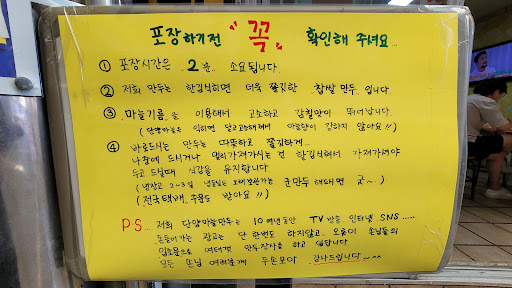 포장하기전 "꼭" 확인해 주녀요...
① 포장시간은 2분 소요됩니다.
② 저희 만두는 한김식히면 더욱 쫄깃한 찹쌀만두 입니다
③ 마늘기름을 이용해서 고소하고 감칠맛이 뛰어납니다.
(단양마늘은 익히면 달고고소해져서 마늘향이 강하지 않아요!!)
④ 바로드시는 만두는 따뜻하고 쫄깃하게..
나중에 드시거나 멀리가져가시는건 한김식혀서 가져가셔야
두고 드실때 식감을 유지합니다.
(냉장고 2~3일 냉동실은 오래보관가능 군만두해드시면 굿~.)
(전국택배 주문도 받아요!!)
P.S... 저희 단양마늘만두는 10여년동안 TV방송 인터넷 SNS.....
돈들어가는 광고는 단 한번도 하지않고.. 오롯이 손님들의
입소문으로 여태껏 만두장사를 하고 있답니다
모든 손님 여러분께 두손모아 감사드립니다~^^